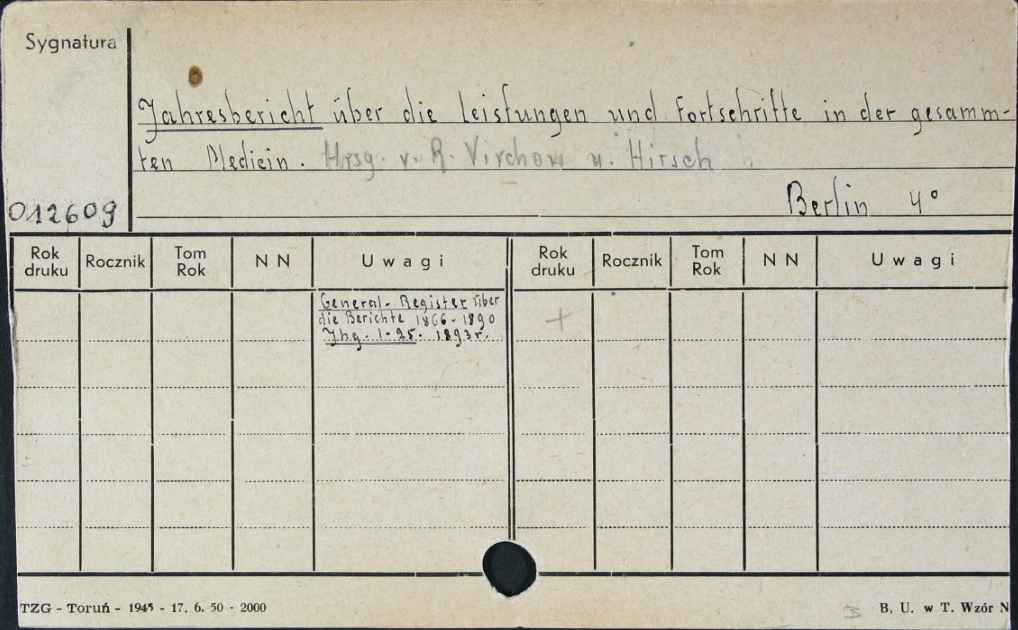 Sygnatura
Jahresbericht über die Leistungen und Fortschritte in der gesamm-
ten Medicin. Hrsg. v. R. Virchow u. Hirsch
012609
Berlin 4°
Rok druku Rocznik Tom Rok N N Uwagi Rok druku Rocznik Tom Rok N N Uwagi
General-Register über
die Berichte 1866-1890
Jhg. 1-25. 1893r.
+
TZG - Toruń - 1945 - 17. 6. 50 - 2000
B. U. w T. Wzór N